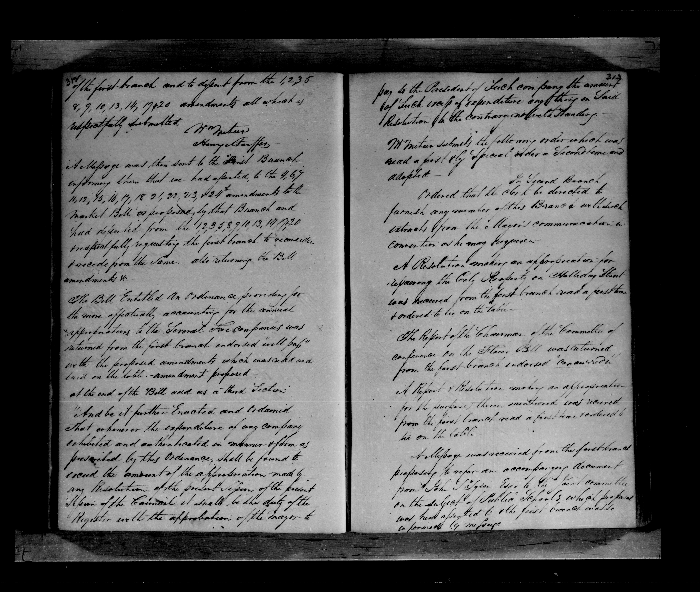 of the first branch and to dissent from the 1, 2, 3, 5
8, 9, 10, 13, 14, 19, & 20 amendments all which is
respectfully submitted
Wm
Henry Stouffer
A Message was then sent to the First Branch
informing them that we had assented, to the 4, 6, 7
to the
Market Bill as proposed, by that Branch and
had dissented from the 1, 2, 3, 5, 8, 9, 10, 13, 14, 19, 20
& respectfully requesting the first branch to reconsider
& recede from the same. also returning the Bill
amendments &c
The Bill Entitled An Ordinance providing for
the more effectually accounting for the annual
appropriations to the several Fire companies was
returned from the first branch endorsed will pass
with the proposed amendments which was read and
laid on the table - amendment proposed
at the end of the Bill add as a third Section
"And be it further Enacted and Ordained
That whenever the expenditure of any company
exhibited and authenticated in manner & form as
prescribed by this Ordinance, shall be found to
exceed the amount of the appropriation made by
any Resolution at the present
of the it shall be the duty of the
Register with the approbation of the mayor to
313
pay to the President of such company the amount
of such excess of expenditure any thing in said
Resolution to the contrary notwithstanding
Mr submits the following order which was
read a first & by special order a second time and
adopted —
In Second Branch
Ordered that the Clerk be directed to
furnish any member of this Branch with such
extracts from the Mayor's communication in
convention as he may require
A Resolution making an appropriation for
repairing the City on Holliday Street
was received from the first branch read a first time
& ordered to lie on the table
The Report of the Chairman of the Committee of
conference on the Bill was returned
from the first branch endorsed
A Report & Resolution making an appropriation
for the purposes therein mentioned was received
from the first branch read a first time & ordered to
lie on the table
A Message was received from the first branch
proposing to refer an accompanying document
from John Esqr to the joint committee
on the subject of Public Schools, which proposal
was read assented to & the first branch was so
informed by message